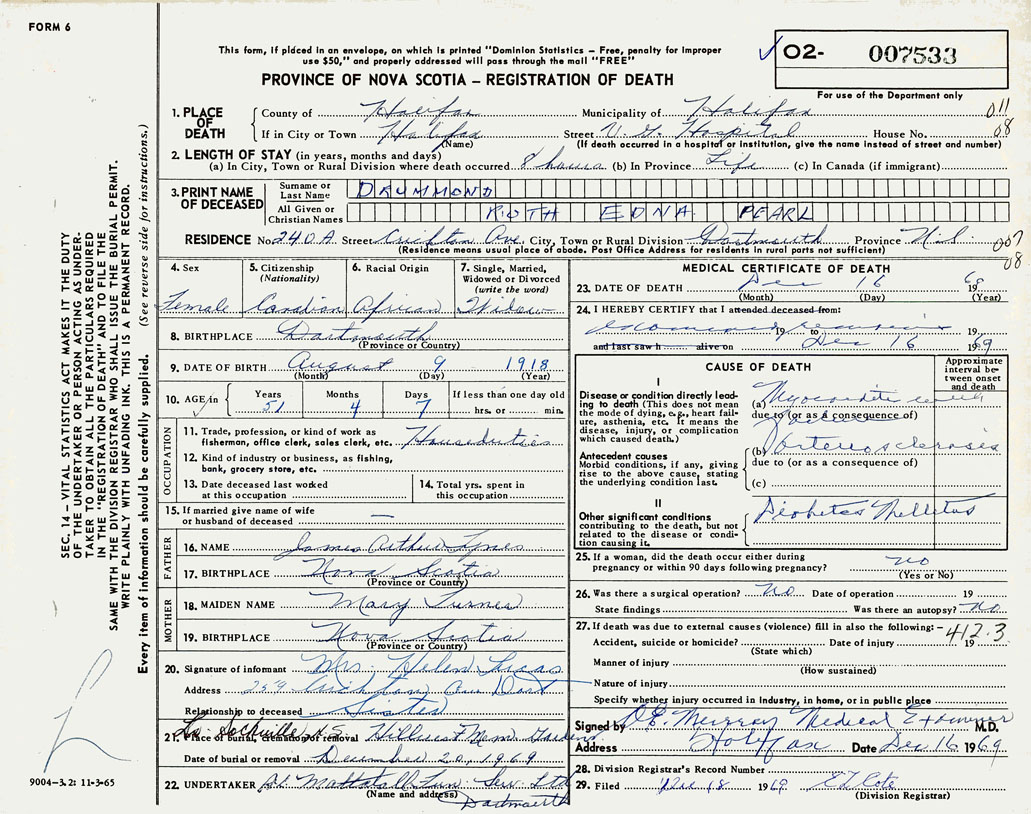 FORM 6
This form, if placed in an envelope, on which is printed "Dominion Statistics – Free, penalty for improper
use $50," and properly addressed will pass through the mail "FREE"
PROVINCE OF NOVA SCOTIA – REGISTRATION OF DEATH
02- 007533
For use of the Department only
1. PLACE OF DEATH
County of Halifax Municipality of Halifax 011
If in City or Town Halifax Street V. G. Hospital House No. 08
(Name) (If death occurred in a hospital or institution, give the name instead of street and number)
2. LENGTH OF STAY (in years, months and days)
(a) In City, Town or Rural Division where death occurred 8 hours (b) In Province Life (c) In Canada (if immigrant)
3. PRINT NAME OF DECEASED
Surname or Last Name DRUMMOND
All Given or Christian Names RUTH EDNA PEARL
RESIDENCE No. 240A Street Crichton Ave City, Town or Rural Division Dartmouth Province N.S. 007
(Residence means usual place of abode. Post Office Address for residents in rural parts not sufficient) 08
4. Sex Female
5. Citizenship (Nationality) Canadian
6. Racial Origin African
7. Single, Married, Widowed or Divorced (write the word) Widow
8. BIRTHPLACE Dartmouth
(Province or Country)
9. DATE OF BIRTH August 9 1918
(Month) (Day) (Year)
10. AGE in Years 51 Months 4 Days 7 If less than one day old hrs. or min.
OCCUPATION
11. Trade, profession, or kind of work as fisherman, office clerk, sales clerk, etc. Houseduties
12. Kind of industry or business, as fishing, bank, grocery store, etc.
13. Date deceased last worked at this occupation
14. Total yrs. spent in this occupation
15. If married give name of wife or husband of deceased —
FATHER
16. NAME James Arthur Tynes
17. BIRTHPLACE Nova Scotia
(Province or Country)
MOTHER
18. MAIDEN NAME Mary Turner
19. BIRTHPLACE Nova Scotia
(Province or Country)
20. Signature of informant Mrs. Helen
Address Crichton Ave Dart
Relationship to deceased Sister
21. Place of burial, cremation or removal Hillcrest Mem. Gardens
Sackville N.S.
Date of burial or removal December 20, 1969
22. UNDERTAKER Mattatall Fun. Serv. Ltd
(Name and address) Dartmouth
MEDICAL CERTIFICATE OF DEATH
23. DATE OF DEATH Dec 16 1969
(Month) (Day) (Year)
24. I HEREBY CERTIFY that I attended deceased from:
19 to 19
and last saw h alive on Dec 16 1969
CAUSE OF DEATH
Approximate interval between onset and death
I
Disease or condition directly leading to death (This does not mean the mode of dying, e.g., heart failure, asthenia, etc. It means the disease, injury, or complication which caused death.)
(a) Myocarditis
due to (or as a consequence of)
Antecedent causes
Morbid conditions, if any, giving rise to the above cause, stating the underlying condition last.
(b) arteriosclerosis
due to (or as a consequence of)
(c)
II
Other significant conditions contributing to the death, but not related to the disease or condition causing it.
Diabetes Mellitus
25. If a woman, did the death occur either during pregnancy or within 90 days following pregnancy? no
(Yes or No)
26. Was there a surgical operation? No Date of operation 19
State findings Was there an autopsy? No
27. If death was due to external causes (violence) fill in also the following: – 412.3
Accident, suicide or homicide? Date of injury 19
(State which)
Manner of injury
(How sustained)
Nature of injury
Specify whether injury occurred in industry, in home, or in public place
Signed by Murray Medical Examiner M.D.
Address Halifax Date Dec 16 1969
28. Division Registrar's Record Number
29. Filed Dec 18 1969
(Division Registrar)
SEC. 14 – VITAL STATISTICS ACT MAKES IT THE DUTY
OF THE UNDERTAKER OR PERSON ACTING AS UNDER-
TAKER TO OBTAIN ALL THE PARTICULARS REQUIRED
IN THE "REGISTRATION OF DEATH" AND TO FILE THE
SAME WITH THE DIVISION REGISTRAR WHO SHALL ISSUE THE BURIAL PERMIT.
WRITE PLAINLY WITH UNFADING INK. THIS IS A PERMANENT RECORD.
Every item of information should be carefully supplied. (See reverse side for instructions.)
9004-3.2: 11-3-65